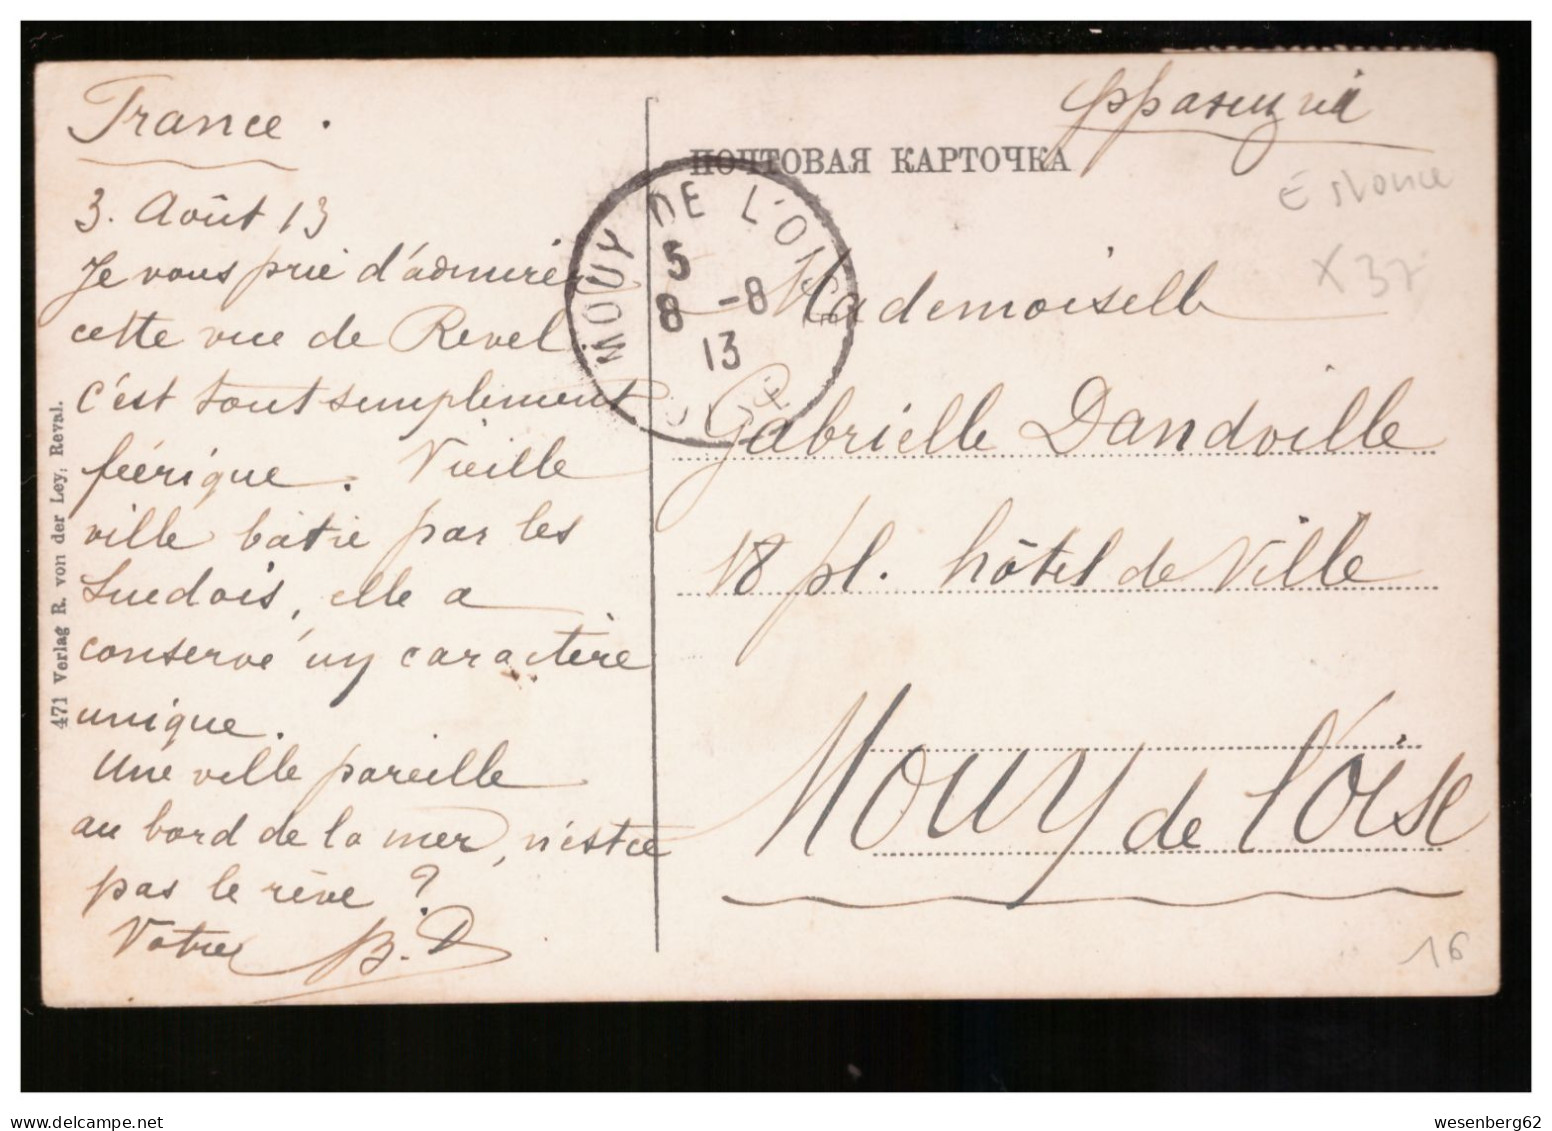 France.
3. Août 13
Je vous prie d'admirer
cette vue de Revel
c'est tout simplement
féérique. Vieille
ville bâtie par les
Suedois, elle a
conservé un caractère
unique.
Une ville pareille
au bord de la mer, n'est ce
pas le rêve ?
Votre B. D
471 Verlag R. von der Ley, Reval.
Франція
ПОЧТОВАЯ КАРТОЧКА
MOUY DE L'OISE
5
8 -8
13
OISE
X37
Mademoiselle
Gabrielle Dandville
18 pl. hôtel de Ville
Mouy de l'Oise
16
wesenberg62